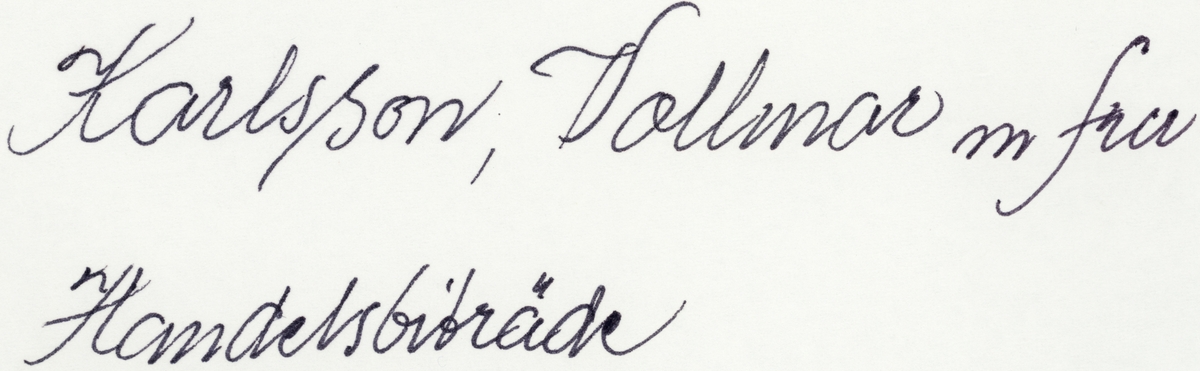 Karlsson, Vollmar m fru
Handelsbiträde